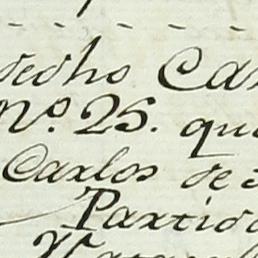 dicho Car
No. 25. qu
Carlos de
Partid